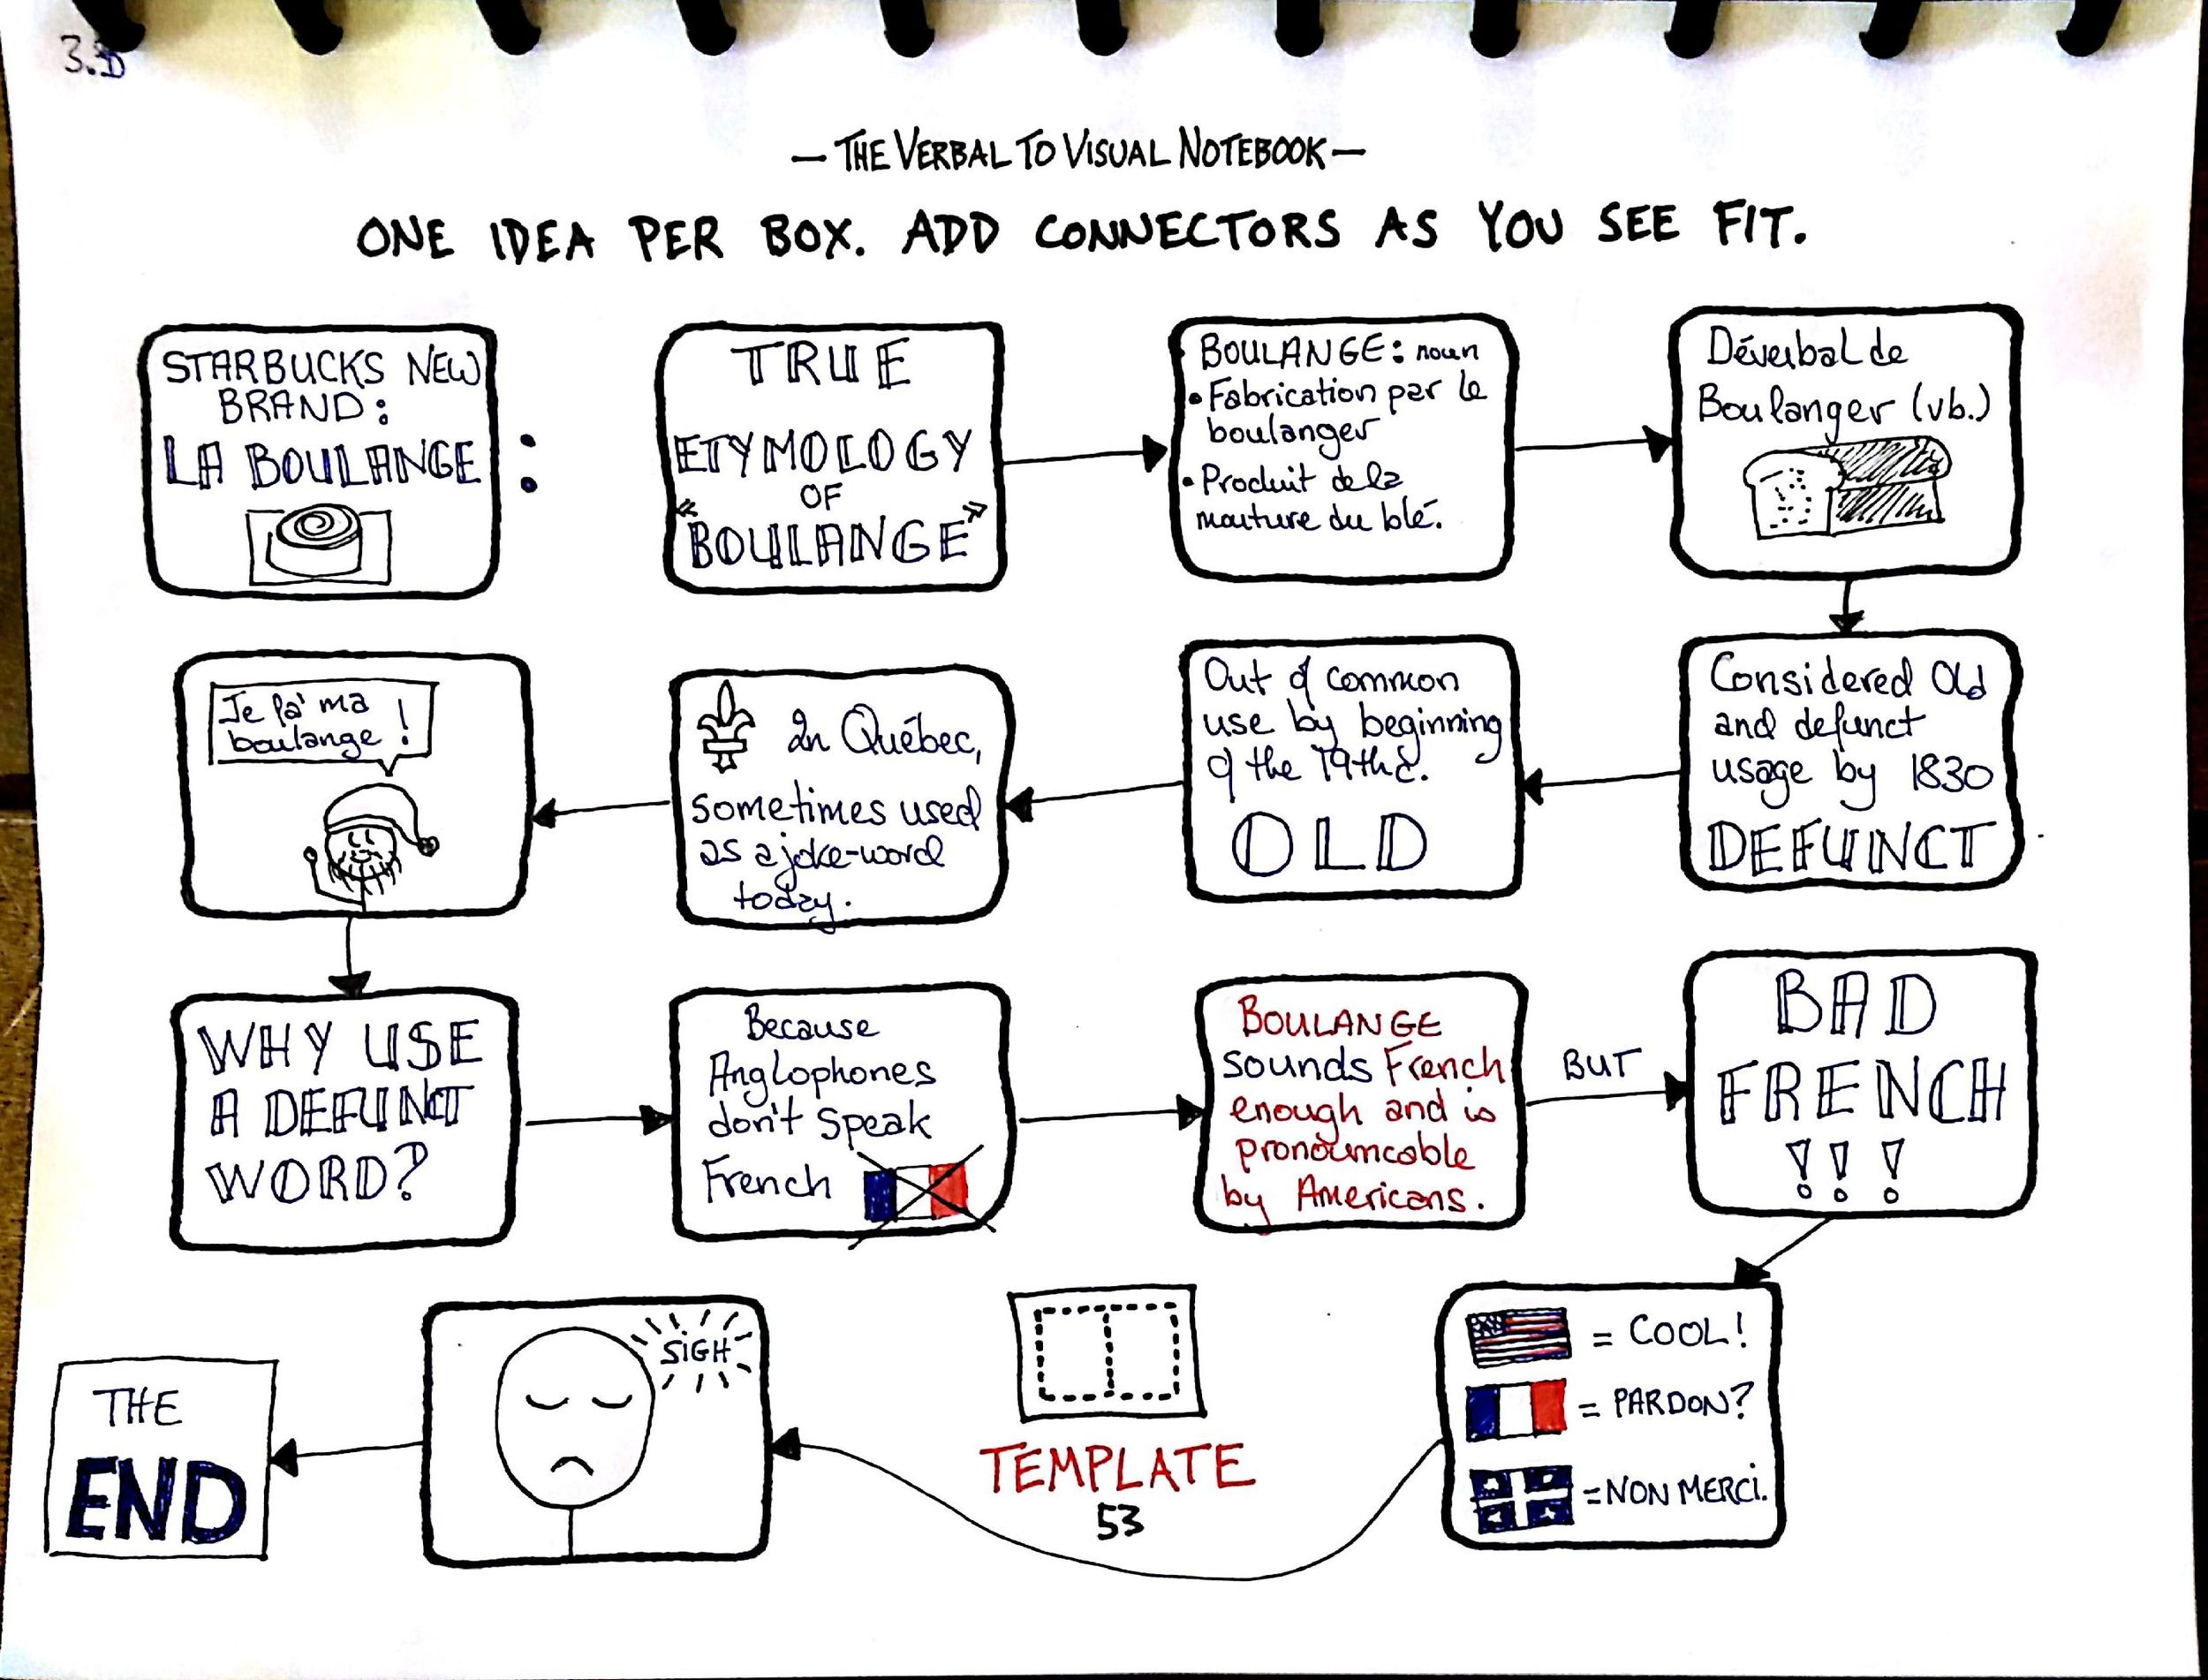 3.D
— THE VERBAL TO VISUAL NOTEBOOK —
ONE IDEA PER BOX. ADD CONNECTORS AS YOU SEE FIT.
STARBUCKS NEW
BRAND:
LA BOULANGE
:
TRUE
ETYMOLOGY
OF
«BOULANGE»
BOULANGE: noun
• Fabrication par le
boulanger
• Produit de la
mouture du blé.
Déverbal de
Boulanger (vb.)
Considered Old
and defunct
usage by 1830
DEFUNCT
Out of common
use by beginning
of the 19th c.
OLD
In Québec,
sometimes used
as a joke-word
today.
Je fa' ma
boulange!
WHY USE
A DEFUNCT
WORD?
Because
Anglophones
don't speak
French
BOULANGE
sounds French
enough and is
pronoumcable
by Americans.
BUT
BAD
FRENCH
!!!
= COOL!
= PARDON?
= NON MERCI.
SIGH
TEMPLATE
53
THE
END